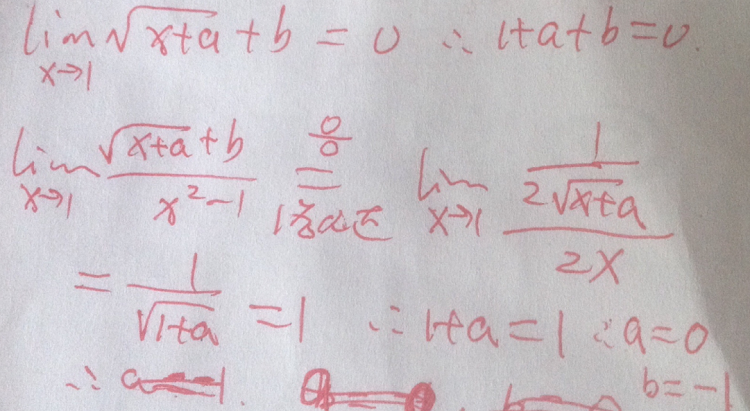 lim x→1 √(x+a) + b = 0 ∴ 1+a+b=0.
lim x→1 (√(x+a) + b)/(x²-1) = 0/0 lim x→1 (1/(2√(x+a)))/(2x)
= 1/√(1+a) = 1 ∴ 1+a=1 ∴ a=0
∴ b=-1